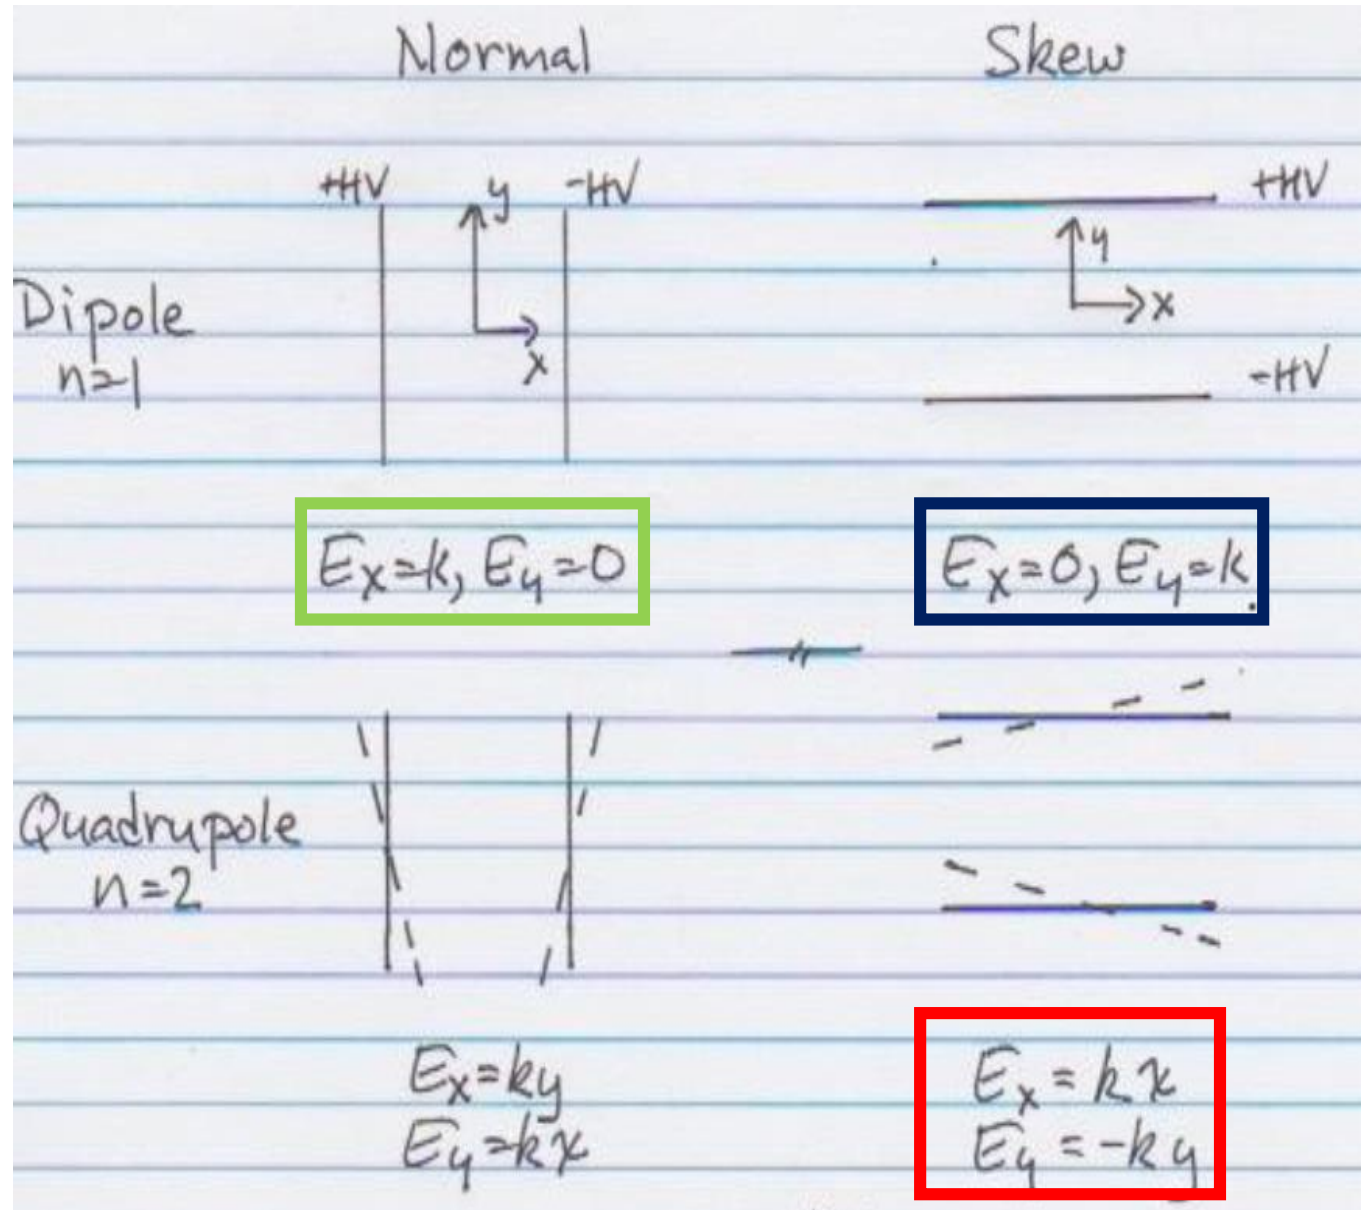 Normal
Skew
+HV
y
-HV
x
+HV
y
x
-HV
Dipole
n=1
Ex=k, Ey=0
Ex=0, Ey=k
Quadrupole
n=2
Ex=ky
Ey=kx
Ex=kx
Ey=-ky